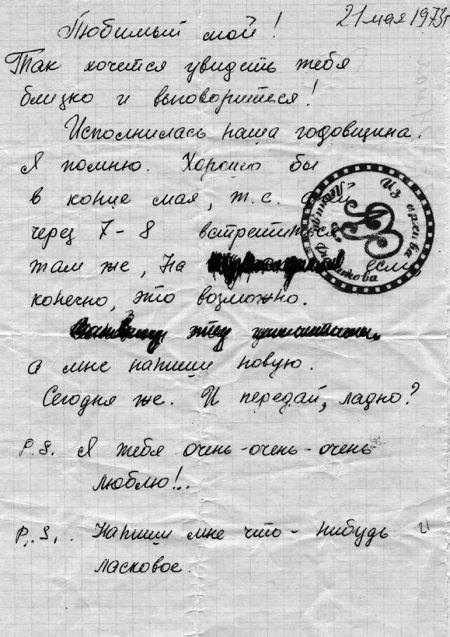 21 мая 1973г
Любимый мой!
Так хочется увидеть тебя
близко и выговориться!
Исполнилась наша годовщина.
Я помню. Хорошо бы
в конце мая, т.е.
через 7-8 встретиться
там же, на если
конечно, это возможно.
а мне напиши новую.
Сегодня же. И передай, ладно?
P.S. Я тебя очень-очень-очень
люблю!..
P.S. Напиши мне что-нибудь
ласковое.
Из архива